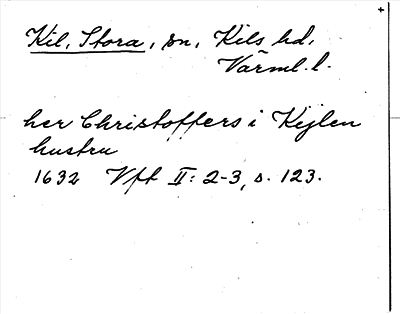 Kil, Stora, sn, Kils hd,
Värml. l.
her Christoffers i Kejlen
hustru
1632 Vft II: 2-3, s. 123.